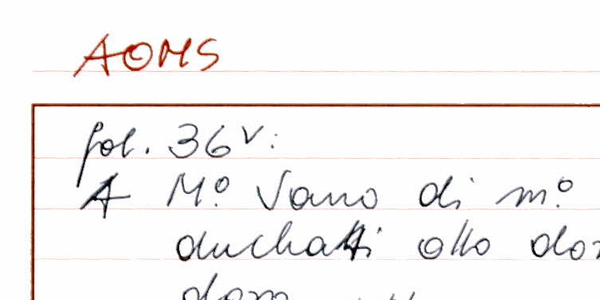 AOMS
fol. 36v:
A M.º Vanno di m.º
duchatti otto